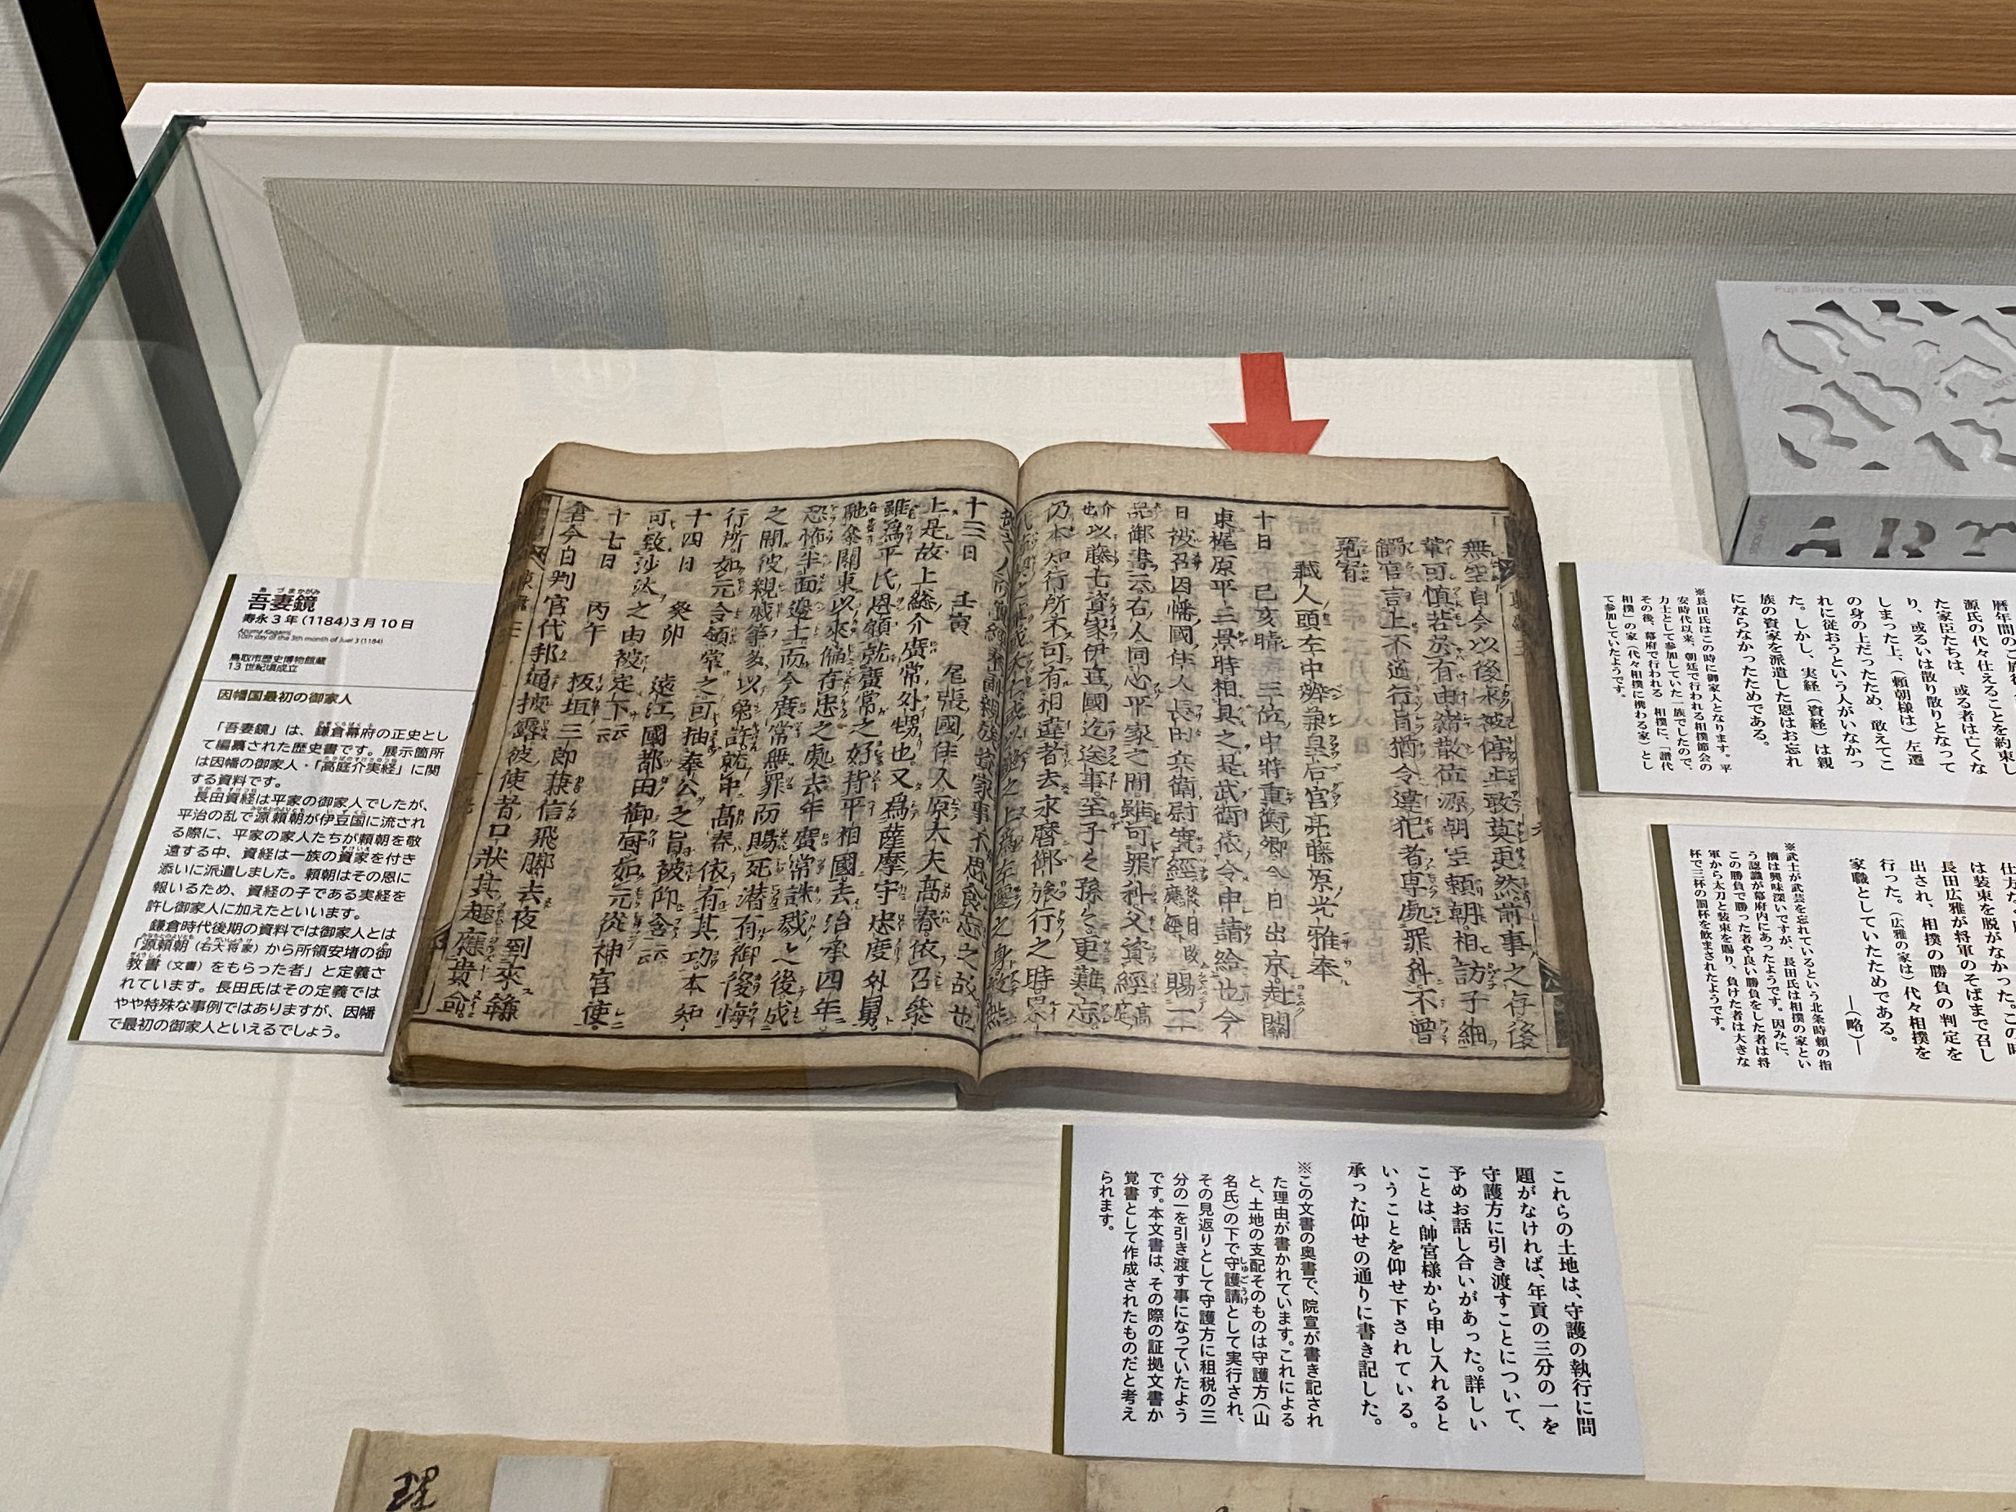 吾妻鏡
あづまかがみ
寿永3年(1184)3月10日
Azuma Kagami
10th day of the 3th month of Juei 3 (1184)
鳥取市歴史博物館蔵
13世紀頃成立
因幡国最初の御家人
「吾妻鏡」は、鎌倉幕府の正史とし
て編纂された歴史書です。展示箇所
は因幡の御家人・「高庭介実経」に関
する資料です。
長田資経は平家の御家人でしたが、
平治の乱で源頼朝が伊豆国に流され
る際に、平家の家人たちが頼朝を敬
遠する中、資経は一族の資家を付き
添いに派遣しました。頼朝はその恩に
報いるため、資経の子である実経を
許し御家人に加えたといいます。
鎌倉時代後期の資料では御家人とは
「源頼朝(右大将家)から所領安堵の御
教書(文書)をもらった者」と定義さ
れています。長田氏はその定義では
やや特殊な事例ではありますが、因幡
で最初の御家人といえるでしょう。
無空自今以後永被停止敢莫更然前事之存後
輩可慎若於有由緒散位源朝臣頼朝相訪子細
觸官言上不道行旨猶令違犯者専處罪科不曾
寛宥
蔵人頭左中辨兼皇后宮亮藤原光雅奉
十日 己亥晴 三位中将重衡卿今日出京赴關
東梶原平三景時相具之是武衛依令申請給也今
日被召因幡國住人長田兵衛尉實經 賜二
品御書云右人同心平家之間雖可罪科父資經高庭
介也以藤七資家伊豆國迄送事至子々孫々更難忘
乃本知行所不可有相違者去永暦御旅行之時
十三日 壬寅 尾張國住人原大夫高春依召参
上是故上総介廣常外甥也又為薩摩守忠度外舅
雖為平氏恩顧就廣常之好背平相國去治承四年
馳参關東以来偏存忠之處去年廣常誅戮之後成
恐怖半面邊土而今廣常無罪而賜死潜有御後悔
之間彼親戚等多以免許就中高春依有其功本知
行所如元令領掌之可抽奉公之旨被仰含云云
十四日 癸卯 遠江國都田御厨如元從神官使
可致沙汰之由被定下云云
十七日 丙午 板垣三郎兼信飛脚去夜到来鎌
倉今日判官代邦通披露彼使者口状其趣應貴命
Fuji Silysia Chemical Ltd.
ART
源氏の代々仕えることを約束し
た家臣たちは、或る者は亡くな
り、或るいは散り散りとなって
しまった上、(頼朝様は)左遷
の身の上だったため、敢えてこ
れに従おうという人がいなかっ
た。しかし、実経(資経)は親
族の資家を派遣した恩はお忘れ
にならなかったためである。
※長田氏はこの時に御家人となります。平
安時代以来、朝廷で行われる相撲節会の
力士として参加していた一族でしたので、
その後、幕府で行われる相撲に、「譜代
相撲」の家(代々相撲に携わる家)とし
て参加していたようです。
は装束を脱がなかった。この時
長田広雅が将軍のそばまで召し
出され、相撲の勝負の判定を
行った。(広雅の家は)代々相撲を
家職としていたためである。
―(略)―
※武士が武芸を忘れているという北条時頼の指
摘は興味深いですが、長田氏は相撲の家とい
う認識が幕府内にあったようです。因みに、
この勝負で勝った者や良い勝負をした者は将
軍から太刀と装束を賜り、負けた者は大きな
杯で三杯の罰杯を飲まされたようです。
これらの土地は、守護の執行に問
題がなければ、年貢の三分の一を
守護方に引き渡すことについて、
予めお話し合いがあった。詳しい
ことは、帥宮様から申し入れると
いうことを仰せ下されている。
承った仰せの通りに書き記した。
※この文書の奥書で、院宣が書き記され
た理由が書かれています。これによる
と、土地の支配そのものは守護方(山
名氏)の下で守護請として実行され、
その見返りとして守護方に租税の三
分の一を引き渡す事になっていたよう
です。本文書は、その際の証拠文書か
覚書として作成されたものだと考え
られます。